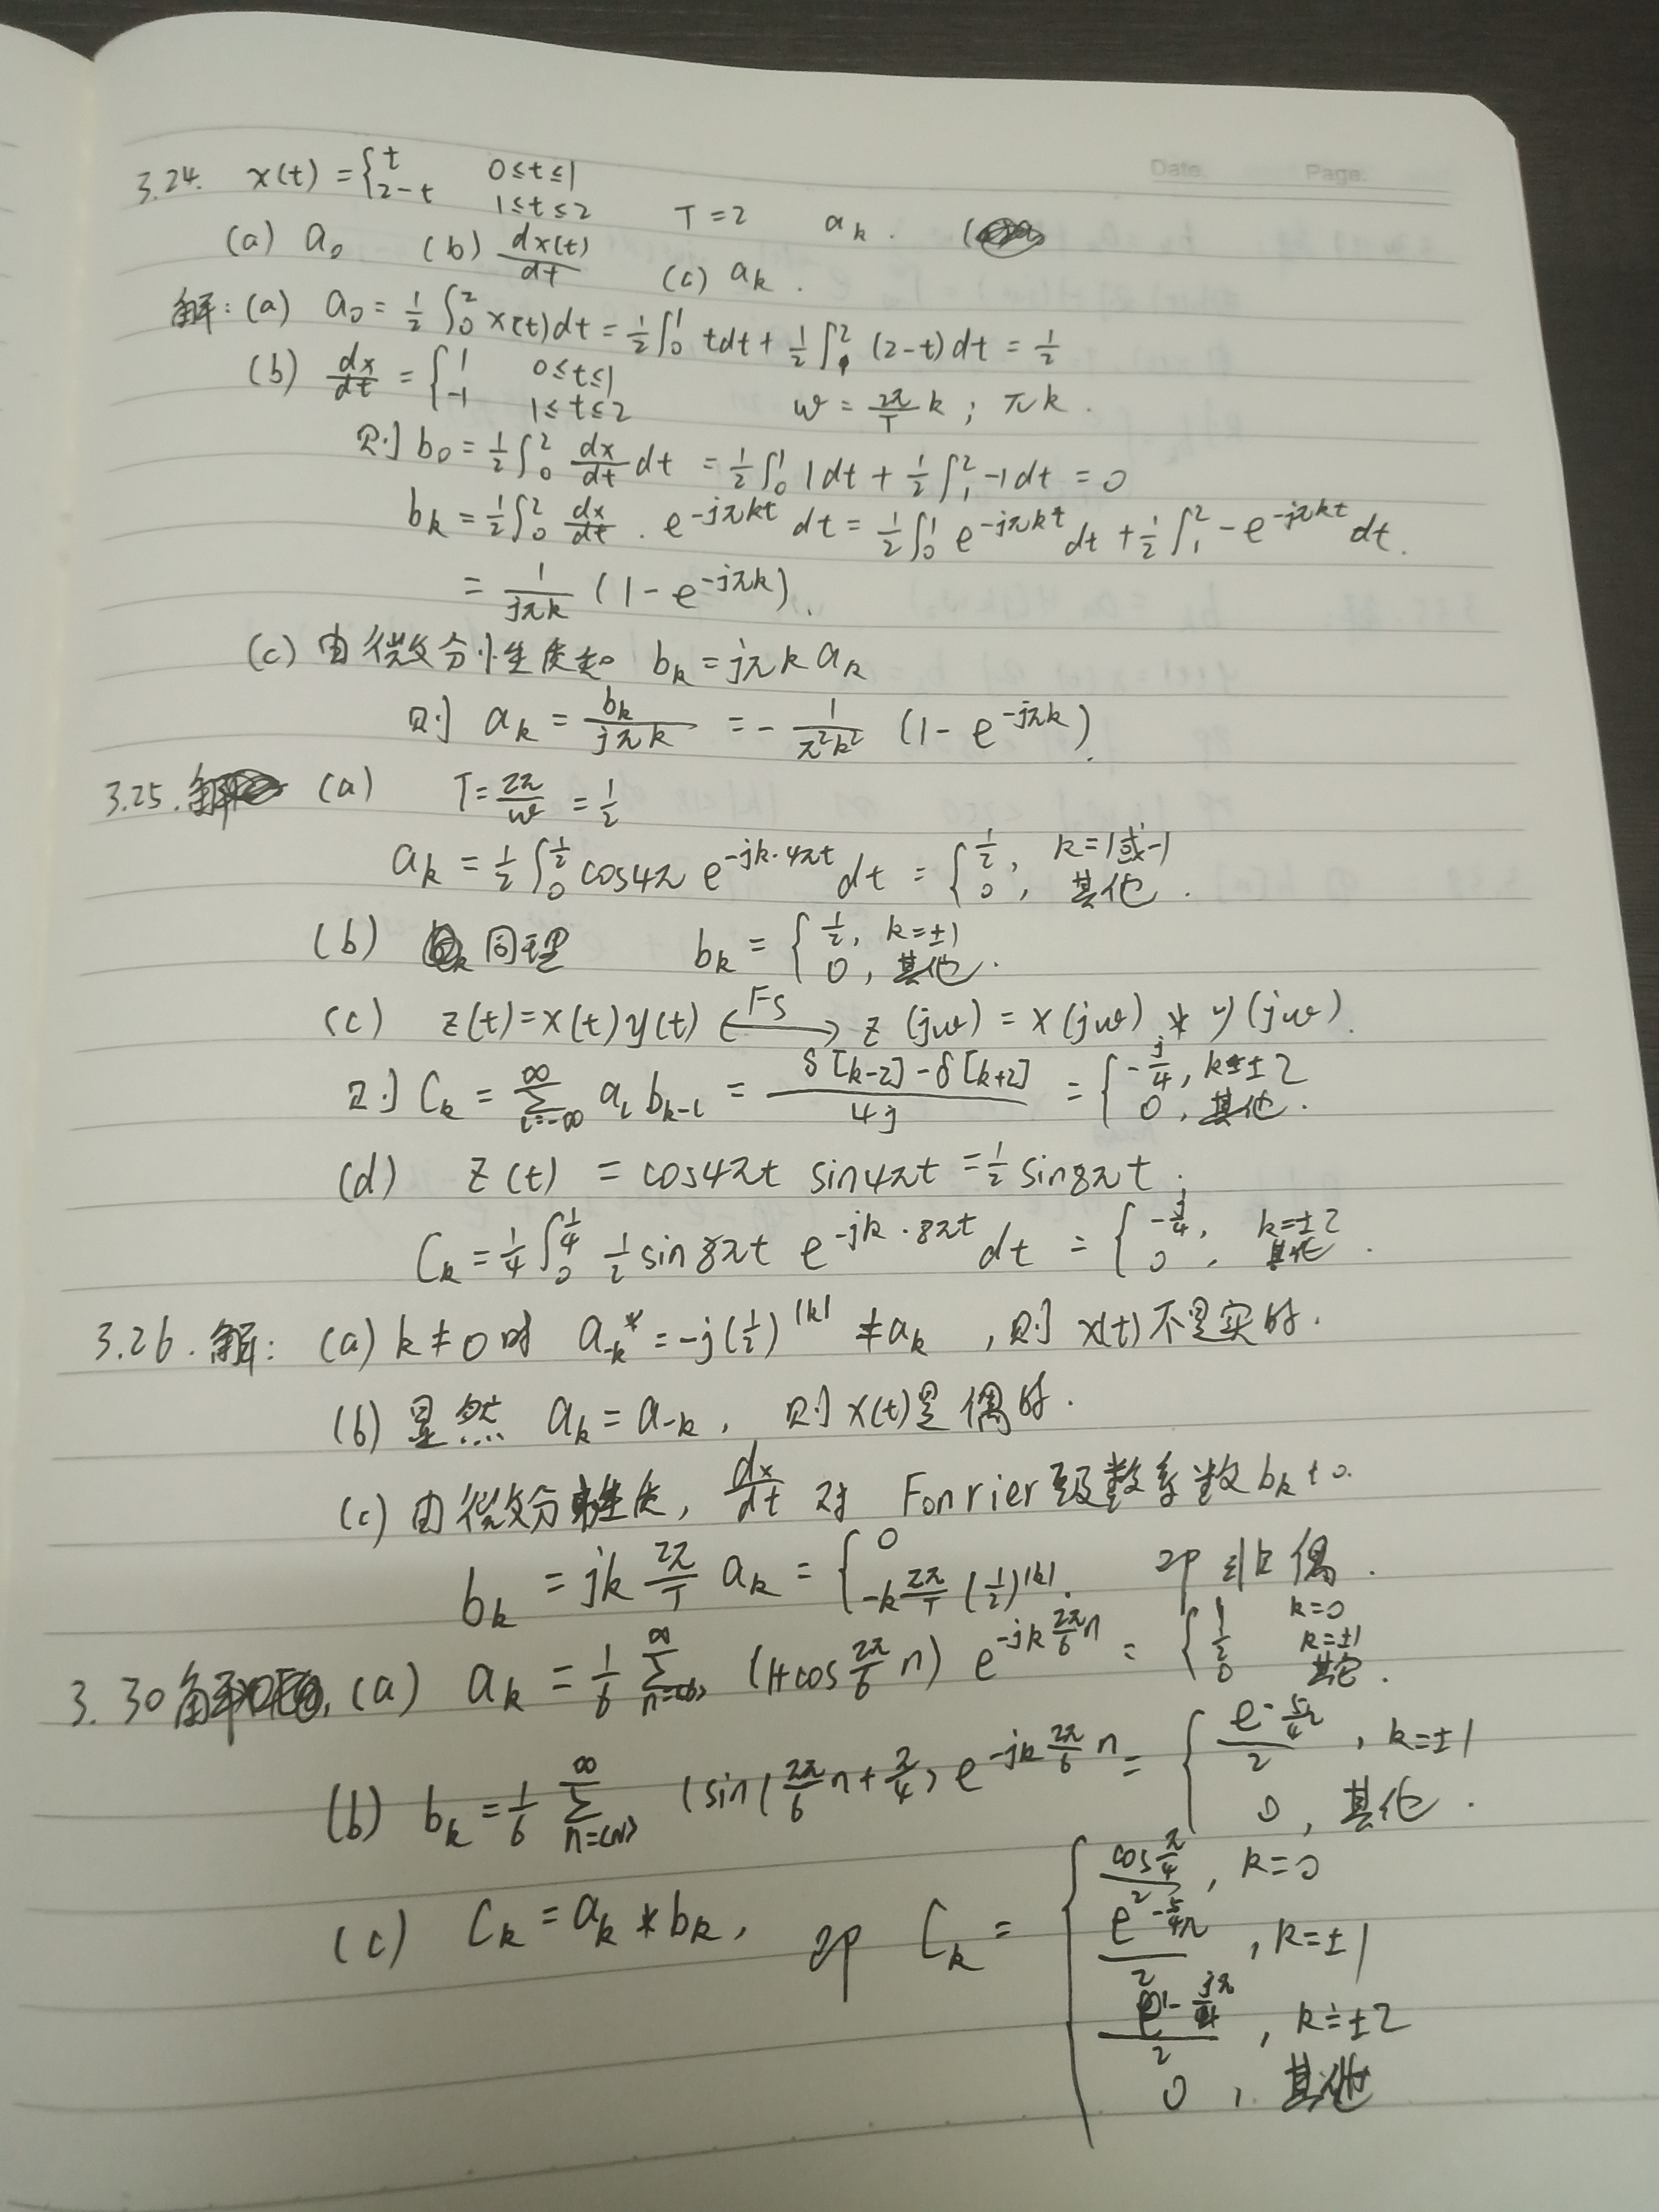 Date. Page.
3.24. x(t) = { t 0≤t≤1
2-t 1≤t≤2 T=2 a_k.
(a) a_0 (b) dx(t)/dt (c) a_k.
解: (a) a_0 = 1/2 ∫_0^2 x(t)dt = 1/2 ∫_0^1 tdt + 1/2 ∫_1^2 (2-t)dt = 1/2
(b) dx/dt = { 1 0≤t≤1
-1 1≤t≤2 w = 2π/T k; πk.
则 b_0 = 1/2 ∫_0^2 dx/dt dt = 1/2 ∫_0^1 1dt + 1/2 ∫_1^2 -1dt = 0
b_k = 1/2 ∫_0^2 dx/dt . e^{-jπkt} dt = 1/2 ∫_0^1 e^{-jπkt} dt + 1/2 ∫_1^2 -e^{-jπkt} dt.
= 1/(jπk) (1-e^{-jπk}).
(c) 由微分性质知 b_k = jπk a_k
则 a_k = b_k/(jπk) = - 1/(π²k²) (1-e^{-jπk}).
3.25. (a) T = 2π/w = 1/2
a_k = 1/2 ∫_0^{1/2} cos4π e^{-jk·4πt} dt = { 1/2, k=1或-1
0, 其他.
(b) 同理 b_k = { 1/2, k=±1
0, 其他.
(c) z(t)=x(t)y(t) <-FS-> z(jw) = x(jw) * y(jw).
则 C_k = ∑_{l=-∞}^{∞} a_l b_{k-l} = (δ[k-2]-δ[k+2])/4j = { -j/4, k=±2
0, 其他.
(d) z(t) = cos4πt sin4πt = 1/2 sin8πt.
C_k = 1/4 ∫_0^{1/4} 1/2 sin8πt e^{-jk·8πt} dt = { -j/4, k=±2
0, 其他.
3.26. 解: (a) k≠0时 a_{-k}^* = -j(1/2)^{|k|} ≠ a_k, 则 x(t)不是实的.
(b) 显然 a_k = a_{-k}, 则 x(t)是偶的.
(c) 由微分性质, dx/dt 对 Fonrier级数系数 b_k
b_k = jk 2π/T a_k = { 0
-k 2π/T (1/2)^{|k|}. 即非偶.
3.30 (a) a_k = 1/6 ∑_{n=<6>}^{∞} (1+cos 2π/6 n) e^{-jk 2π/6 n} = { 1 k=0
1/2 k=±1
0 其它.
(b) b_k = 1/6 ∑_{n=<N>}^{∞} (sin(2π/6 n + π/4) e^{-jk 2π/6 n} = { e^{-5/4 π}/2, k=±1
0, 其他.
(c) C_k = a_k * b_k, 即 C_k = { cos π/4 / 2, k=0
e^{-5/4 π}/2, k=±1
e^{-jπ/4}/2, k=±2
0, 其他